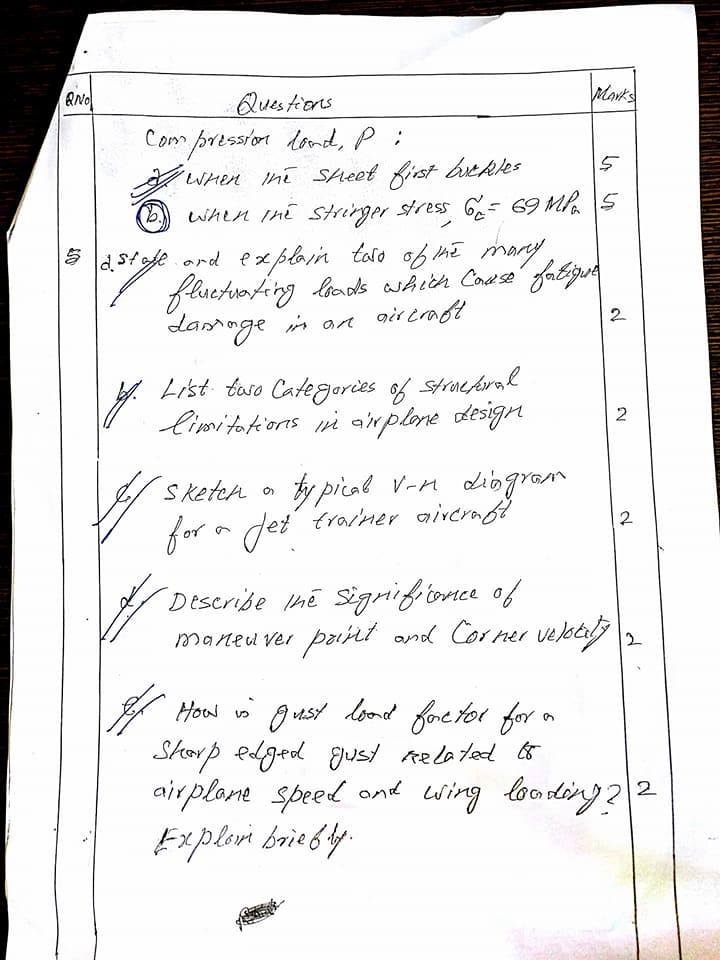 QNo Questions Marks
Compression load, P :
a. when the sheet first buckles 5
b. when the stringer stress, σc = 69 MPa 5
5 a. state and explain two of the many
fluctuating loads which cause fatigue
damage in an aircraft 2
b. List two Categories of structural
limitations in airplane design 2
c. Sketch a typical V-n diagram
for a Jet trainer aircraft 2
d. Describe the significance of
maneuver point and Corner velocity 2
e. How is gust load factor for a
Sharp edged gust related to
airplane speed and wing loading? 2
Explain briefly.